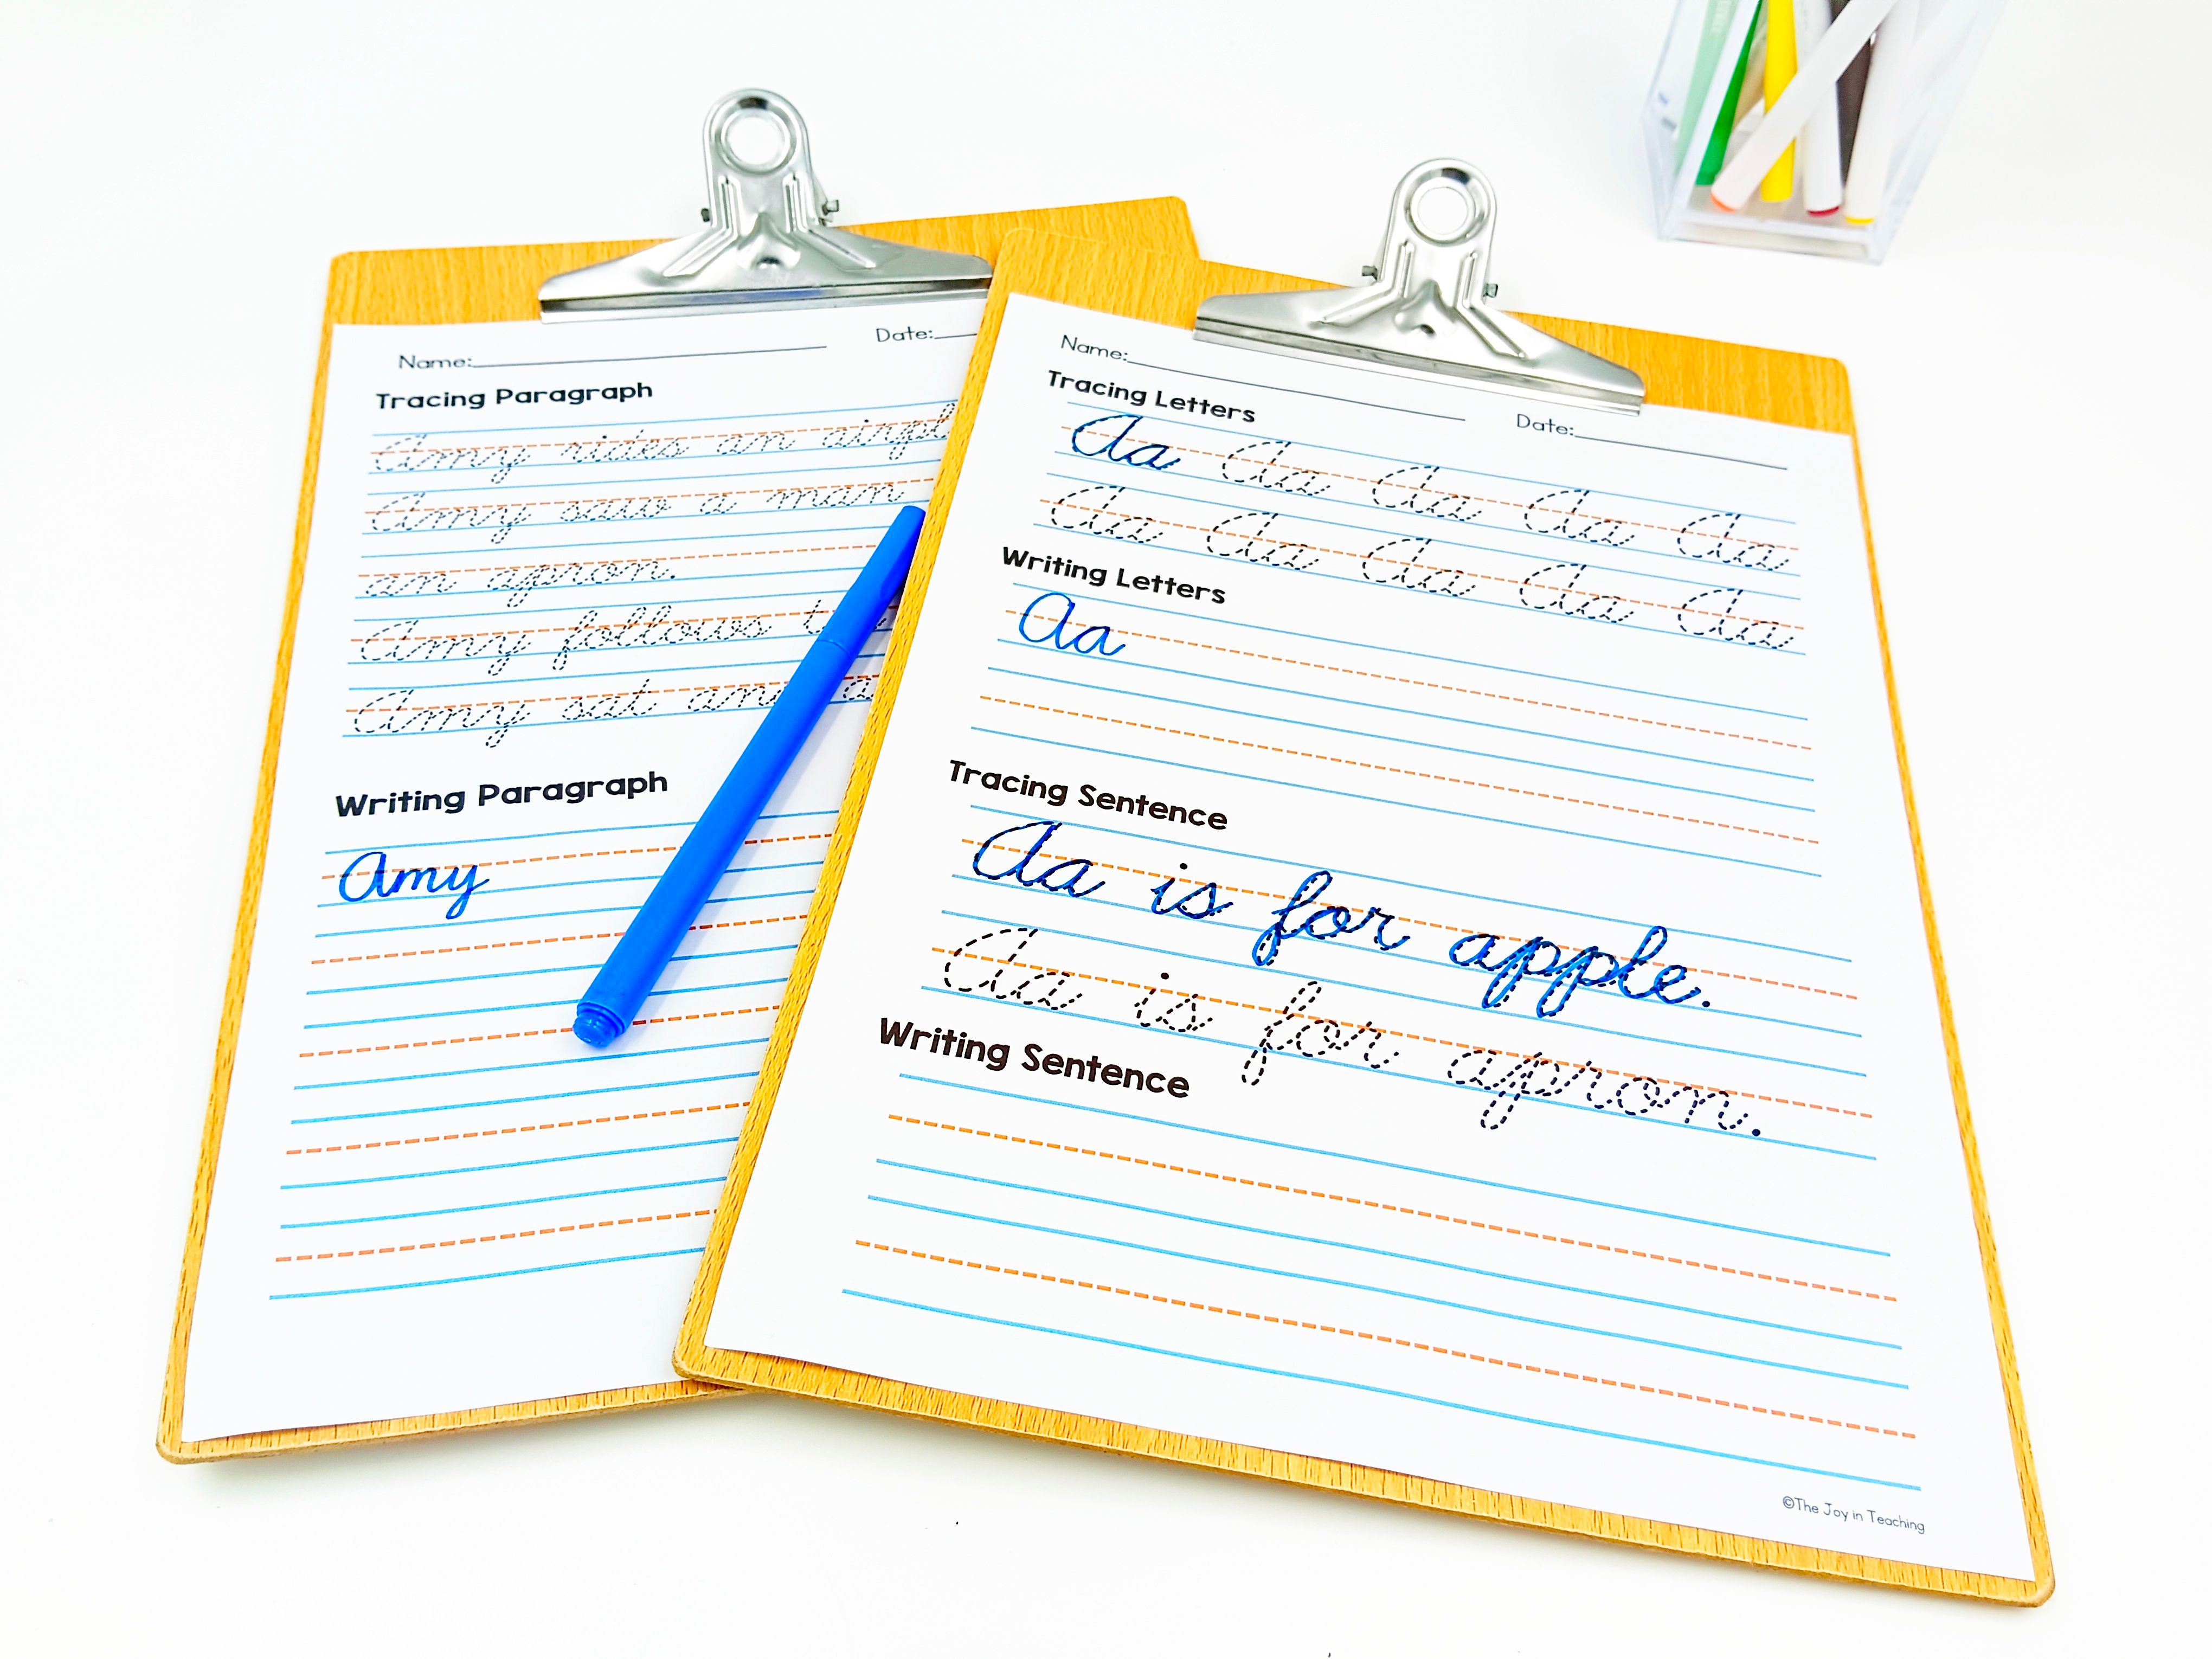 Name: Date:
Tracing Paragraph
Amy rides an
Amy saw a man
an apron.
Amy follows
Amy sat and
Writing Paragraph
Amy
Name: Date:
Tracing Letters
Aa Aa Aa Aa Aa
Aa Aa Aa Aa Aa
Writing Letters
Aa
Tracing Sentence
Aa is for apple.
Aa is for apron.
Writing Sentence
©The Joy in Teaching